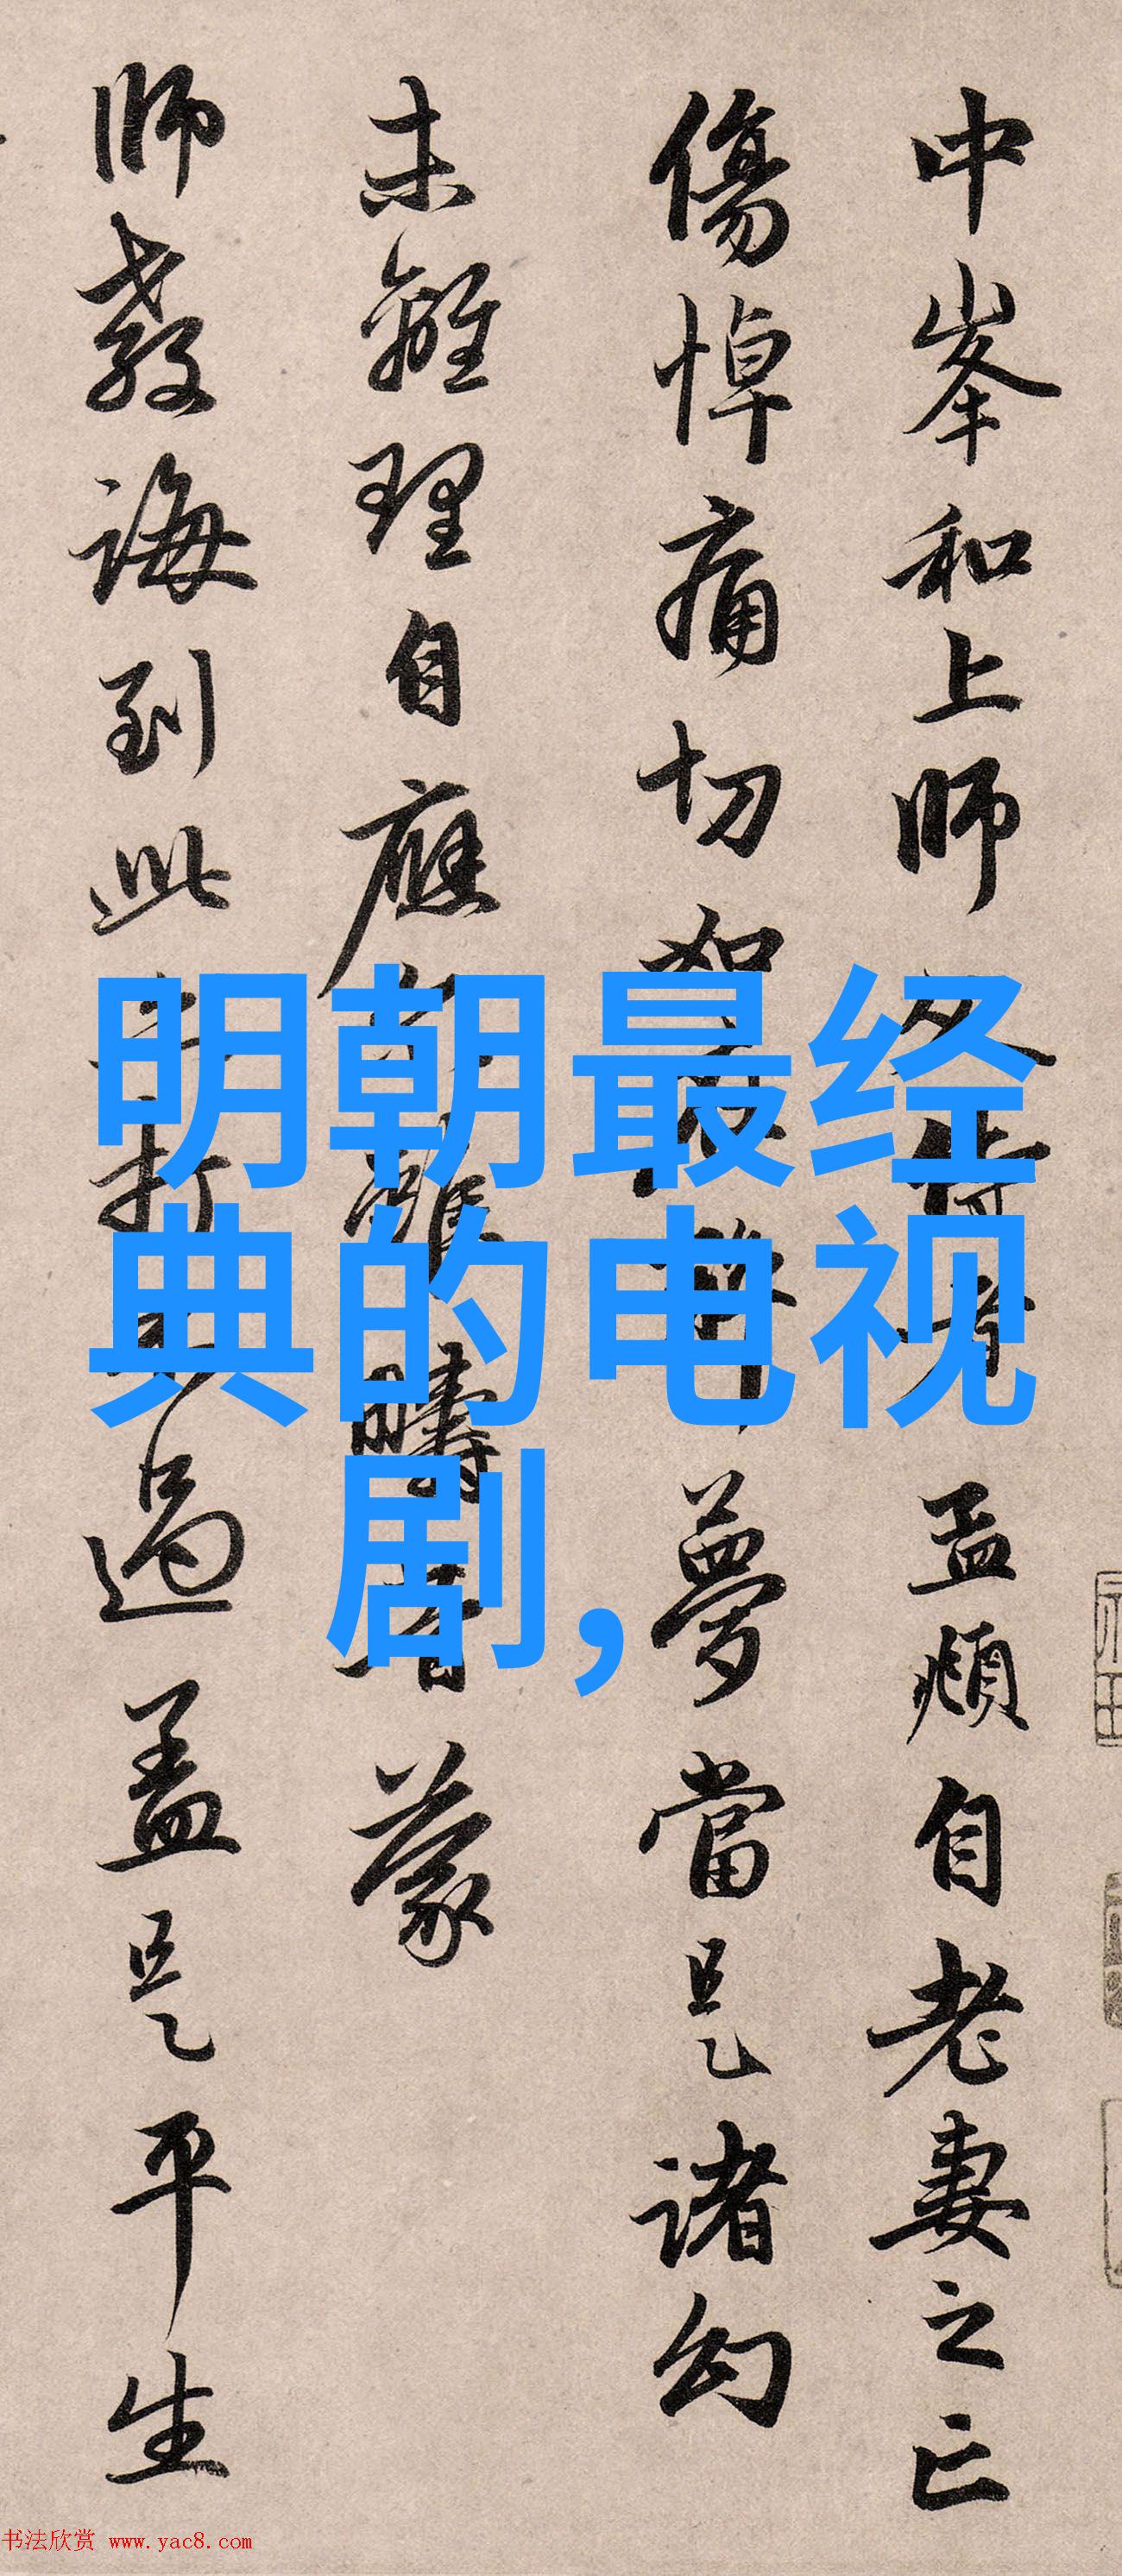 中峯和上師
孟頫自老妻之亡
傷悼痛切如
夢當是諸幻
未離理自應
蒙
師教誨到此
過盖是平生
明朝最经
典的电视
剧,
书法欣赏 www.yac8.com